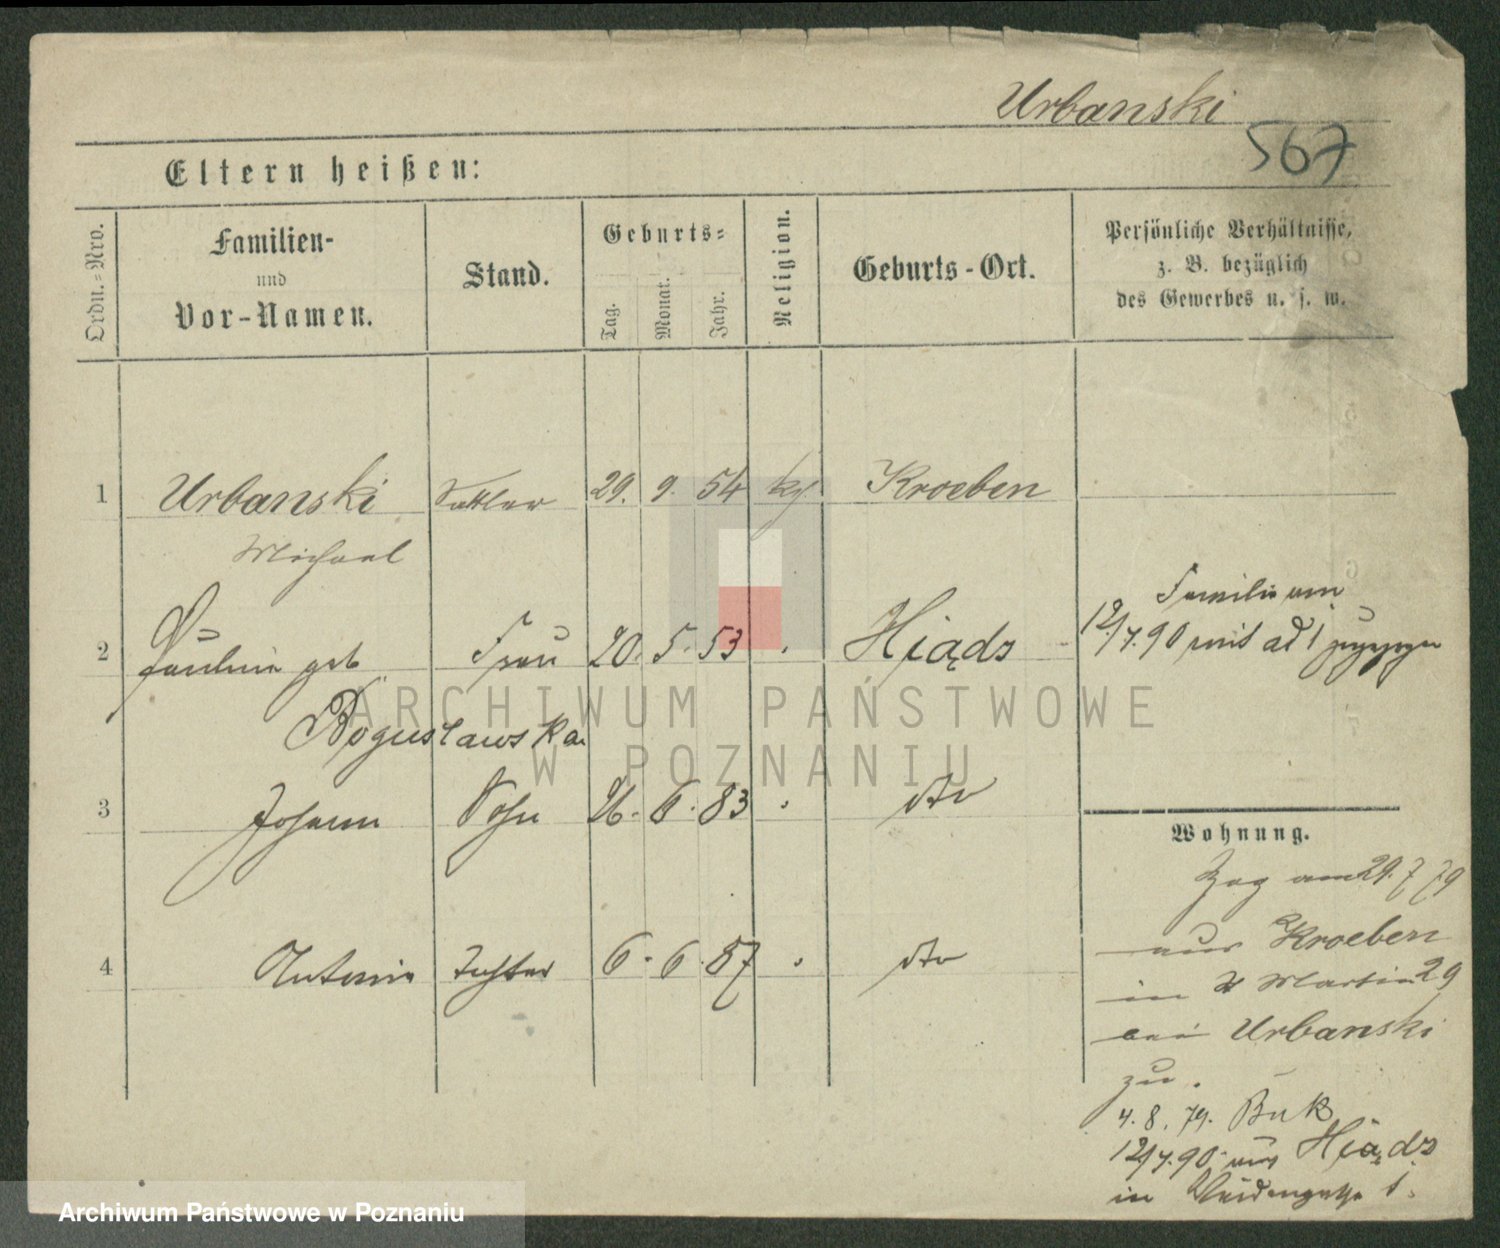 Urbanski
567
Eltern heißen:
Ordn.=Nro.
Familien-
und
Vor-Namen.
Stand.
Geburts=
Tag.
Monat.
Jahr.
Religion.
Geburts-Ort.
Persönliche Verhältnisse,
z. B. bezüglich
des Gewerbes u. s. w.
1 Urbanski Sattler 29. 9. 54 Kroeben
Michael
2 Pauline geb Frau 20. 5. 53
Boguslawska
3 Johann Sohn 26. 6. 83 dto
4 Antonie Tochter 6. 6. 87 dto
Familie am
12/7.90 mit ad 1 zugezogen
Wohnung.
Zog am 29.7 79
aus Kroeben
in St Martin 29
bei Urbanski
zu.
4. 8. 79. Buk
12/7.90 aus
in 1.
ARCHIWUM PAŃSTWOWE
W POZNANIU
Archiwum Państwowe w Poznaniu